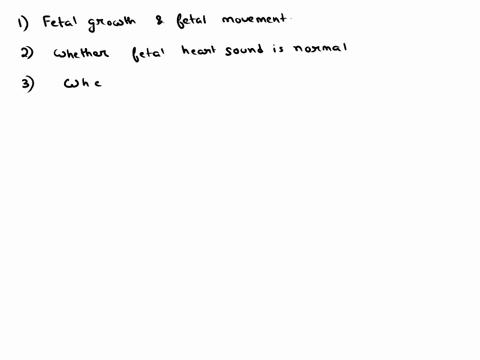 1) Fetal growth & fetal movement
2) Whether fetal heart sound is normal
3) Whe